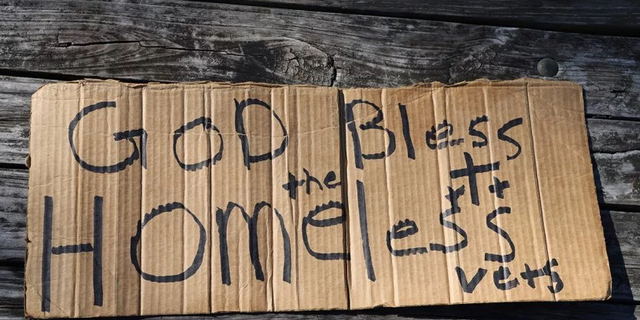 GOD Bless
the
Homeless
vets